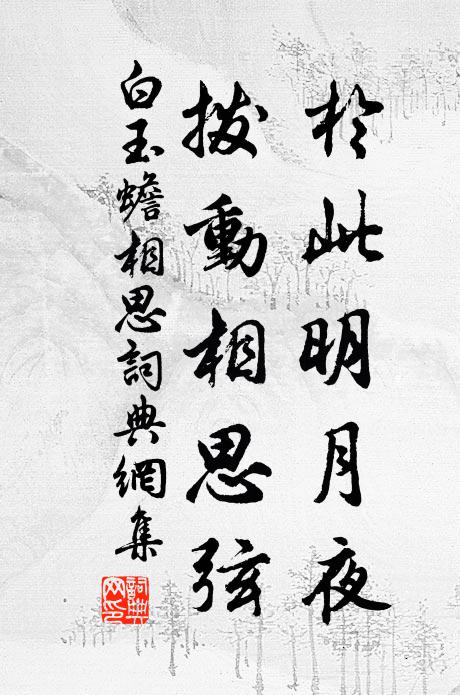 於此明月夜
撥動相思弦
白玉蟾相思詞典網集
詞典網印